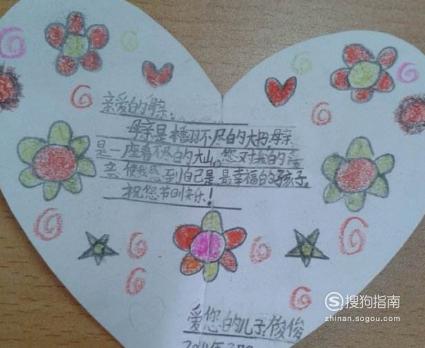 亲爱的母亲:
母亲是本翻不尽的大书,母亲
是一座看不尽的大山,您对我的
爱,使我感到自己是最幸福的孩子,
祝您节日快乐!
爱您的儿子俊俊
搜狗指南
zhinan.sogou.com